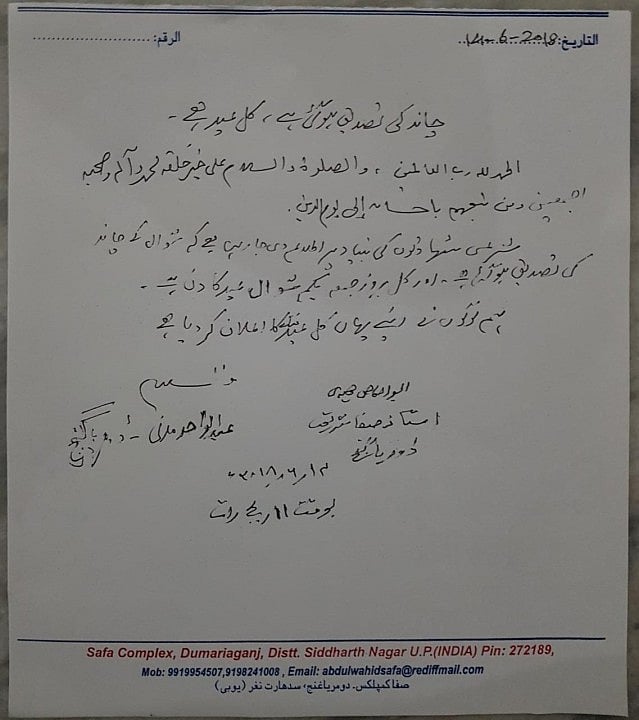 التاريخ: 14-6-2018 الرقم:
چاند کی تصدیق ہوگئی ہے، کل عید ہے۔
الحمد للہ رب العالمین، والصلوۃ والسلام علی خیر خلقہ محمد وآلہ وصحبہ
اجمعین ومن تبعہم باحسان إلی یوم الدین.
شرعی شہادتوں کی بنیاد پر اطلاع دی جا رہی ہے کہ شوال کے چاند
کی تصدیق ہوگئی ہے۔ اور کل بروز جمعہ یکم شوال عید کا دن ہے۔
ہم لوگوں نے اپنے یہاں کل عید کا اعلان کر دیا ہے
والسلام
استاذ صفا شریعت
عبدالواحد مدنی
ڈومریاگنج
۱۴/۶/۲۰۱۸ء
بوقت ۱۱ بجے رات
Safa Complex, Dumariaganj, Distt. Siddharth Nagar U.P.(INDIA) Pin: 272189,
Mob: 9919954507,9198241008 , Email: abdulwahidsafa@rediffmail.com
صفا کمپلکس۔ دومریاغنج، سدھارت نغر (یوبی)